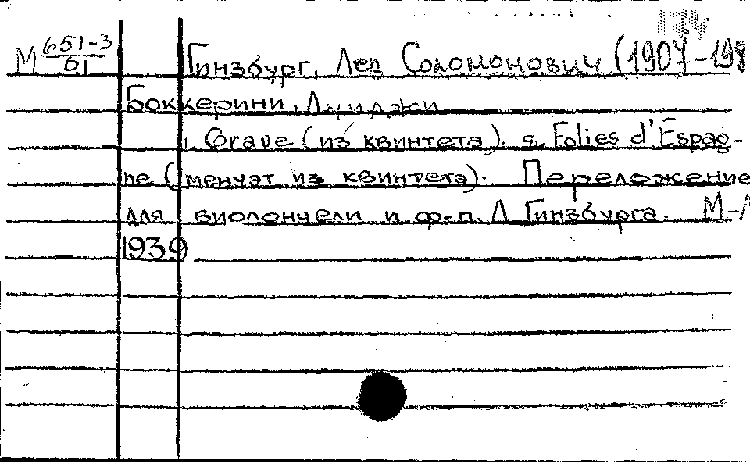 М 651-3/61 Гинзбург, Лев Соломонович (1907-198
Боккерини, Луиджи
1. Grave (из квинтета). 2. Folies d'Espag-
ne (менуэт из квинтета). Переложение
для виолончели и ф-п. Л. Гинзбурга. М-Л
1939